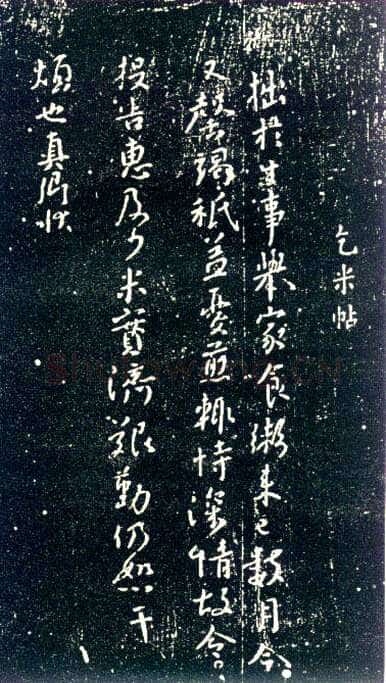 乞米帖
拙於生事舉家食粥來已數月今
又罄竭祗益憂煎輒恃深情故令
投告惠及少米實濟艱勤仍恕干
煩也真卿狀